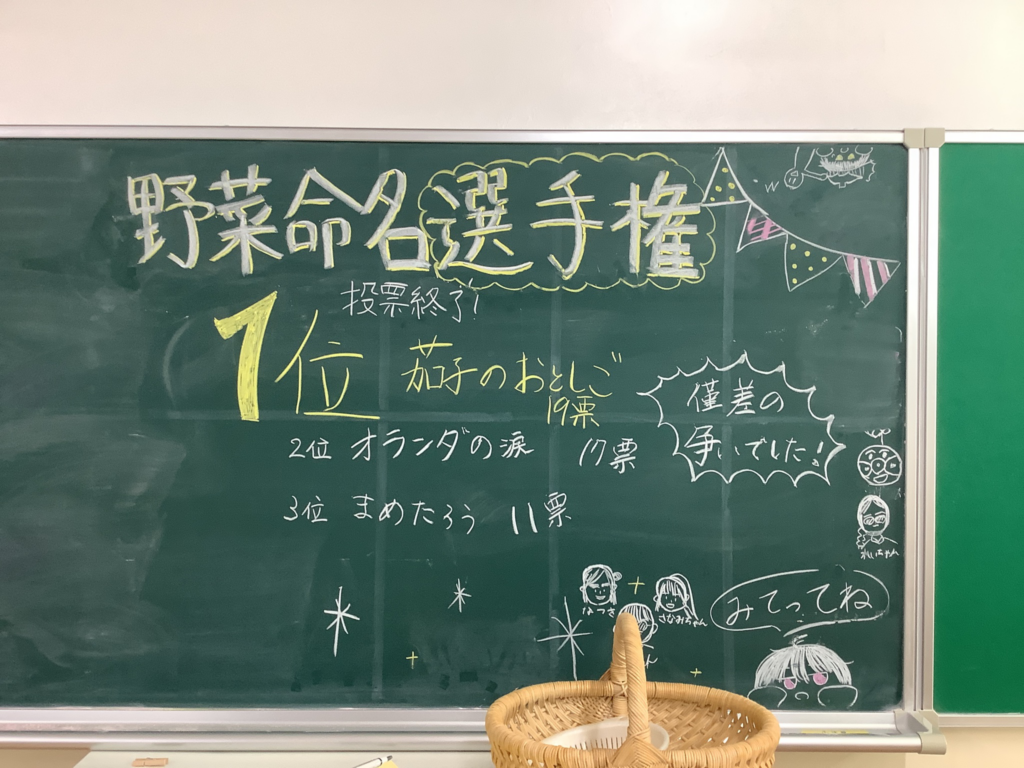 野菜命名選手権
投票終了!
1位 茄子のおとしご
19票
僅差の
争いでした!
2位 オランダの涙 17票
3位 まめたろう 11票
れいちゃん
なつき
さなみちゃん
みてってね